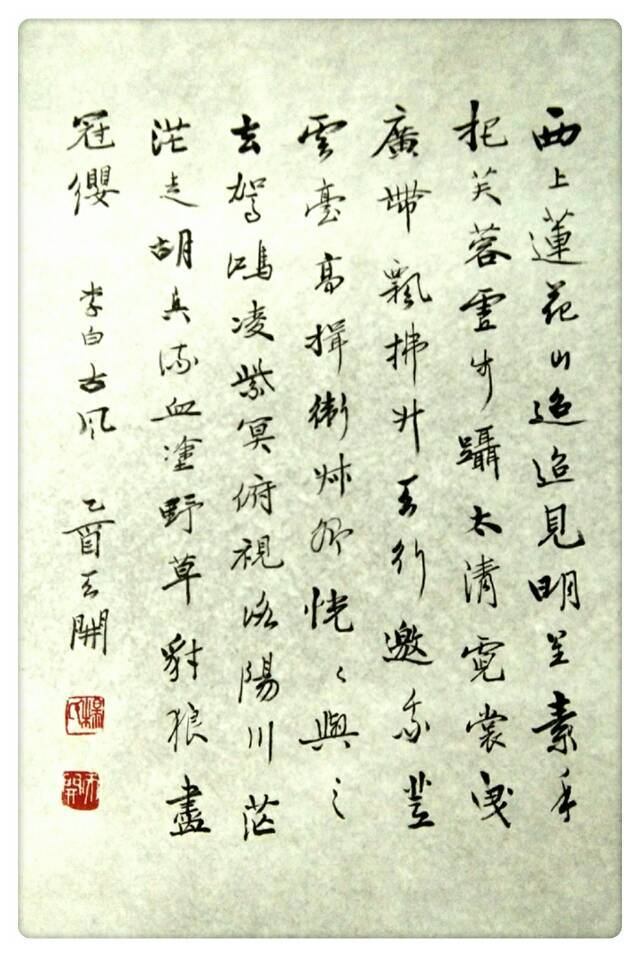 西上蓮花山迢迢見明星素手
把芙蓉虛步躡太清霓裳曳
廣帶飄拂升天行邀我登
雲臺高揖衛叔卿恍〻與之
去駕鴻凌紫冥俯視洛陽川茫
茫走胡兵流血塗野草豺狼盡
冠纓 李白古風 乙酉天開
楊氏
天開